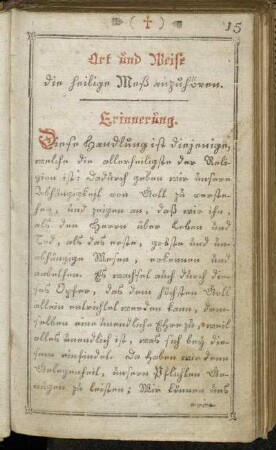 ( † )
15
Art und Weise
die heilige Meß anzuhören.
Erinnerung.
Diese Handlung ist diejenige,
welche die allerheiligste der Reli-
gion ist: dadurch geben wir unsere
Abhängigkeit von Gott zu verste-
hen, und zeigen an, daß wir ihn
als den Herrn über Leben und
Tod, als das erste, größte und un-
abhängige Wesen, erkennen und
anbethen. Es wachset auch durch die-
ses Opfer, das dem höchsten Gott
allein entrichtet werden kann, dem-
selben eine unendliche Ehre zu, weil
alles unendlich ist, was sich bey die-
sem einfindet. Da haben wir denn
Gelegenheit, unsern Pflichten Ge-
nügen zu leisten; Wir können uns